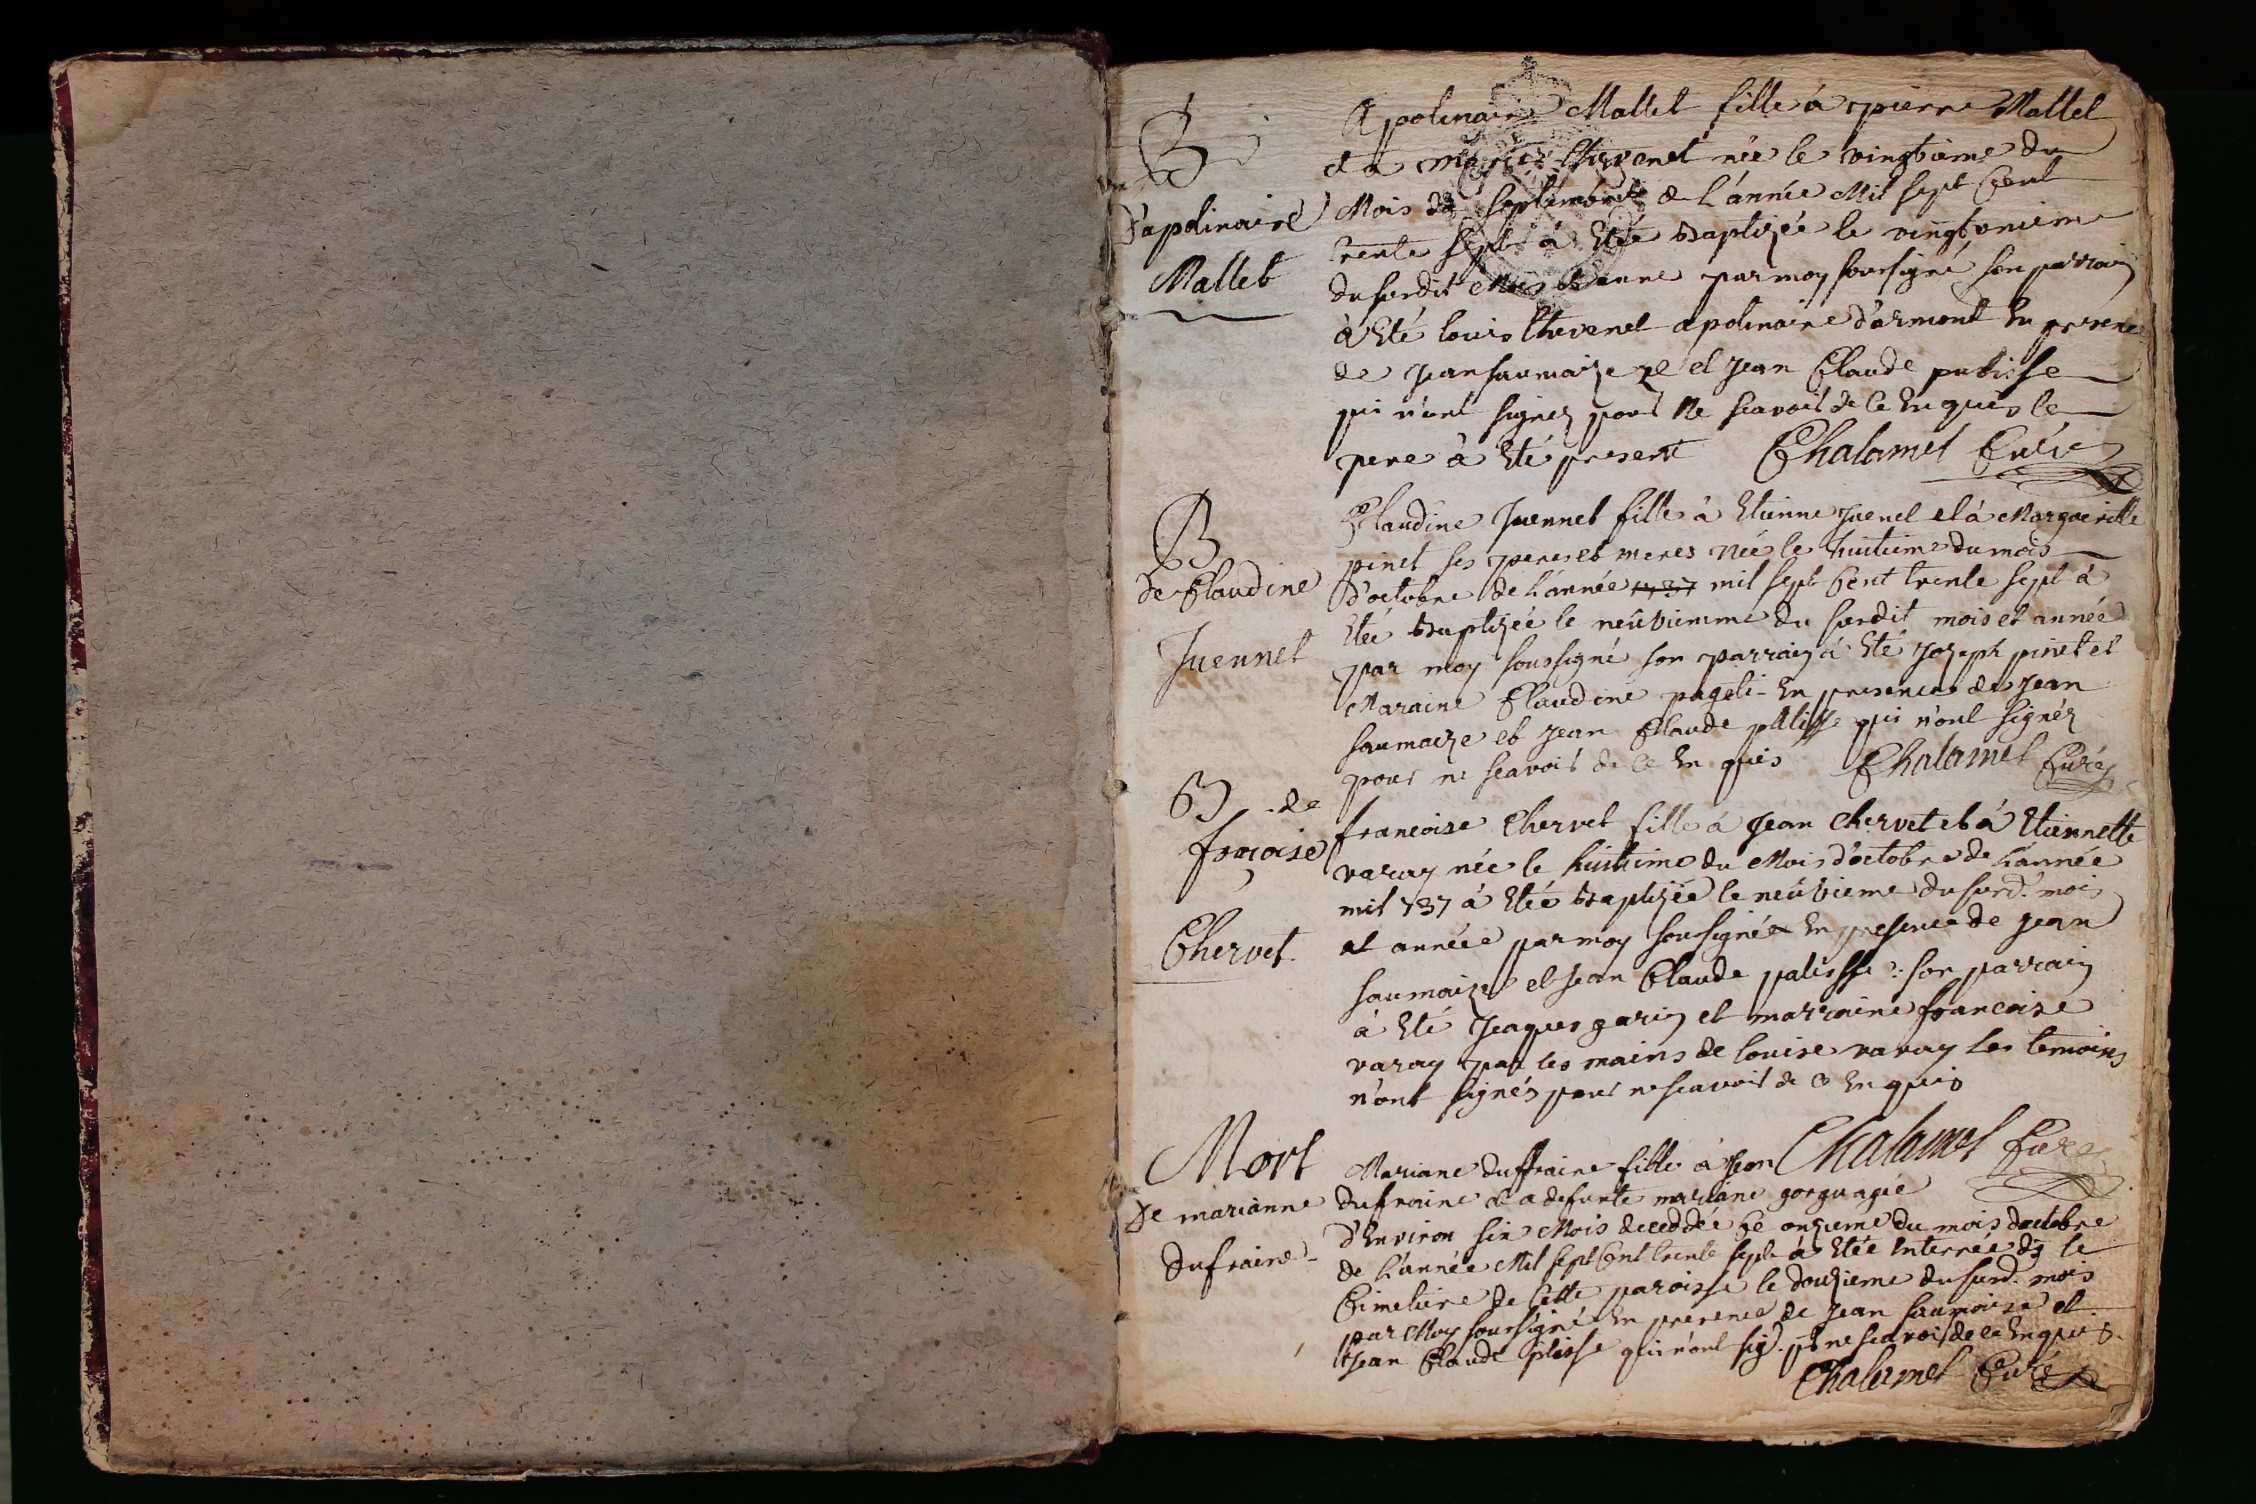 B
d'apolinaire
Mallet
Apolinaire Mallet fille à pierre Mallet
et a marie thevenet née le vingtieme du
Mois de septembre de l'année Mil sept Cent
trente sept à Etée baptizée le vingtunieme
du surdit Mois et anne par moy soussigné son parrain
à Eté louis thevenet apolinaire d'armont En presence
de jean saumaize et jean Claude palisse
qui n'ont signez pour Ne scavoir de ce Enquis le
pere à Eté present Chalamel Curé
B
de Claudine
Juennet
Claudine Juennet fille à Etienne Juenet et à Margueritte
pinet ses peres et meres Née le huitieme du mois
d'octobre de l'année 1737 mil sept Cent trente sept à
Etée baptizée le neûviemme du surdit mois et année
par moy soussigné son parrain à Eté joseph pinet et
Maraine Claudine pageti En presence de jean
saumaize et jean Claude palisse qui n'ont signéz
pour ne scavoir de ce En quis Chalamel Curé
B de
fracoise
Chervet
francoise Chervet fille à Jean Chervet et à Etiennette
varay née le huitieme du Mois d'octobre de l'année
mil 737 à Etée baptizée le neûvieme du surd. mois
et année par moy soussigné En presence de jean
saumaize et jean Claude palisse : son parrain
à Eté Jeaques garin et marraine francoise
varay par les mains de louise varay les temoins
n'ont signés pour ne scavoir de ce En quis
Chalamel Curé
Mort
De marianne
dufraine
Mariane duffraine fille à Jean
dufraine et a defunte mariane gorgu agée
d'Environ six Mois deceddée Le onzieme du mois doctobre
de l'année Mil sept Cent trente sept à Etée Enterrée ds le
Cimetiere de Cette paroisse le douzieme du surd. mois
par Moy soussigné En presence de jean saumaize et
Jean Claude plisse qui n'ont sig. pr ne scavoir de ce Enquis
Chalamel Curé